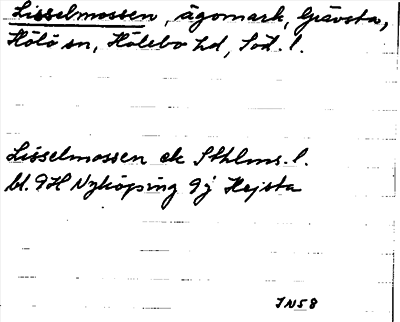 Lisselmossen, ägomark, Grävsta,
Hölö sn, Hölebo hd, Söd. l.
Lisselmossen ek Sthlms. l.
bl. 9H Nyköping 9j Hejsta
IN58